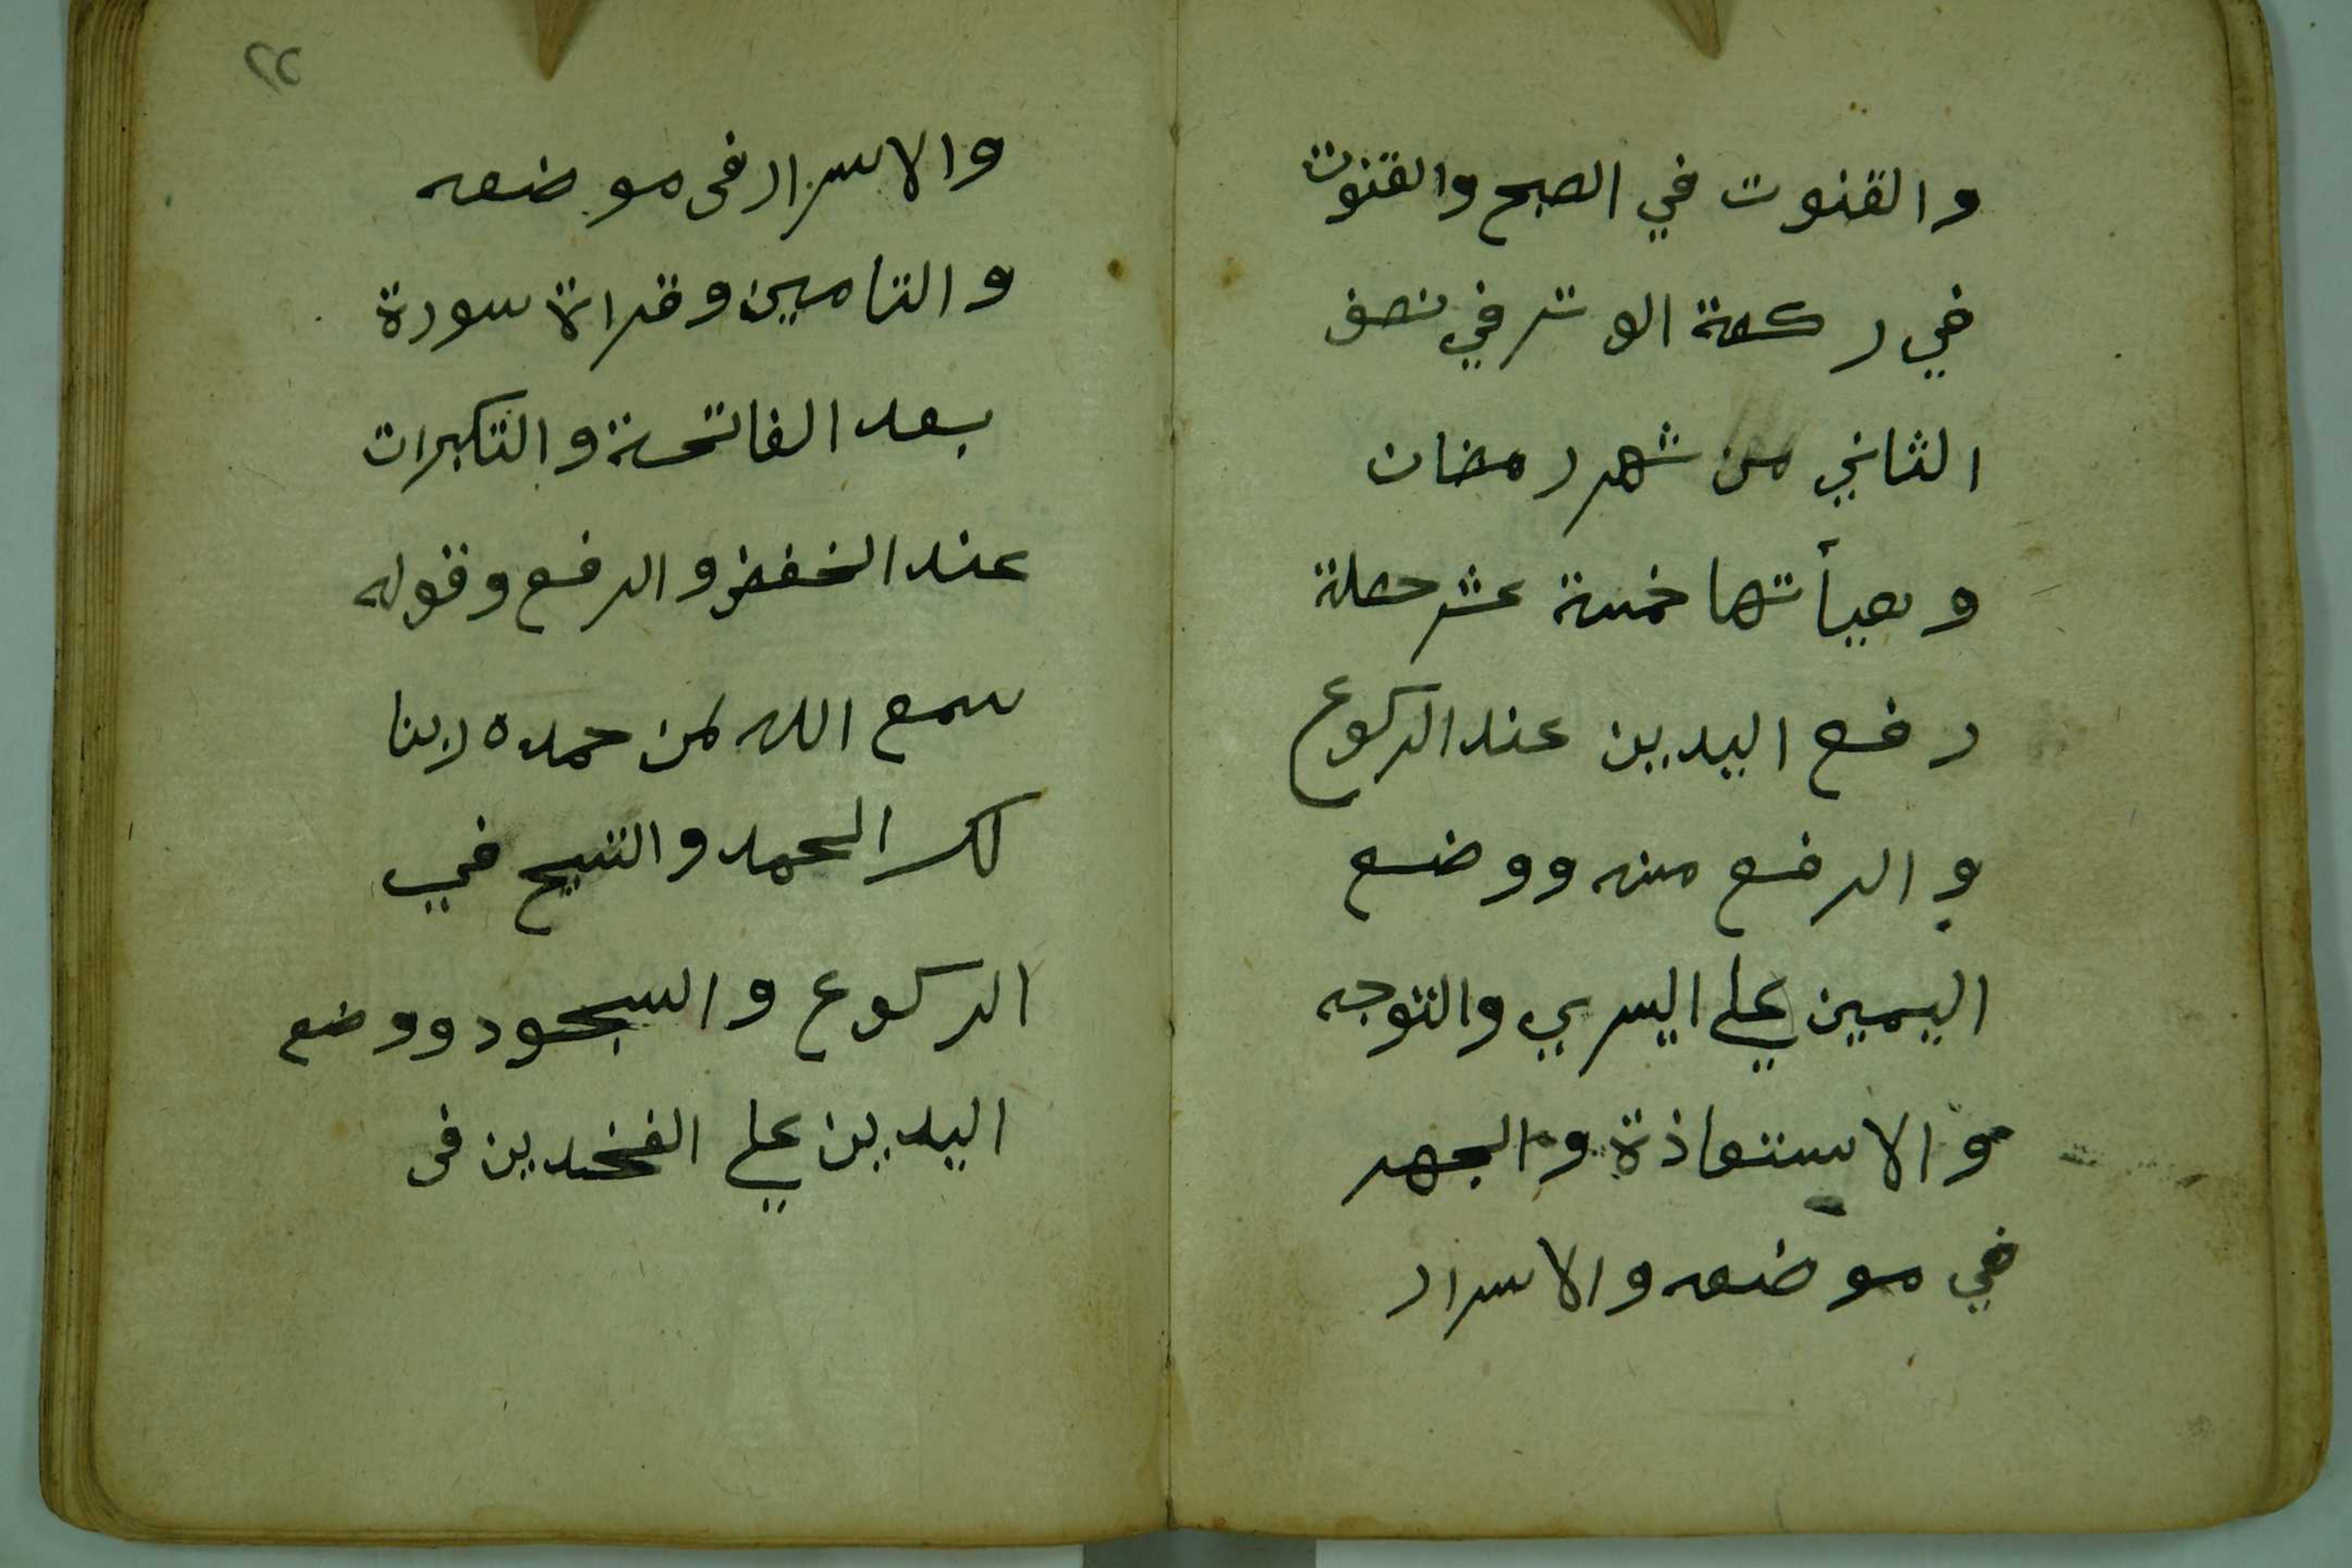 والقنوت في الصبح والقنوت
في ركعة الوتر في نصف
الثاني من شهر رمضان
وهيأتها خمسة عشر حصلة
رفع اليدين عند الركوع
والرفع منه ووضع
اليمين علي اليسري والتوجه
والاستعاذة والجهر
في موضعه والاسرار
٢٢
والاسرار فى موضعه
والتامين وقراة سورة
بعد الفاتحة والتكبرات
عند الخفض والرفع وقوله
سمع الله لمن حمده ربنا
لك الحمد والتسبيح في
الركوع والسجود ووضع
اليدين علي الفخدين فى